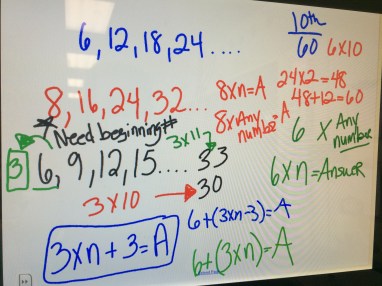 6, 12, 18, 24 ....
10th
60 6x10
8, 16, 24, 32 ...
8xn=A
24x2=48
48+12=60
8xAny number=A
Need beginning#
3x11
6 x Any number
3 6, 9, 12, 15 .... 33
6xn=Answer
3x10 → 30
6+(3xn-3)=A
3xn+3=A
6+(3xn)=A